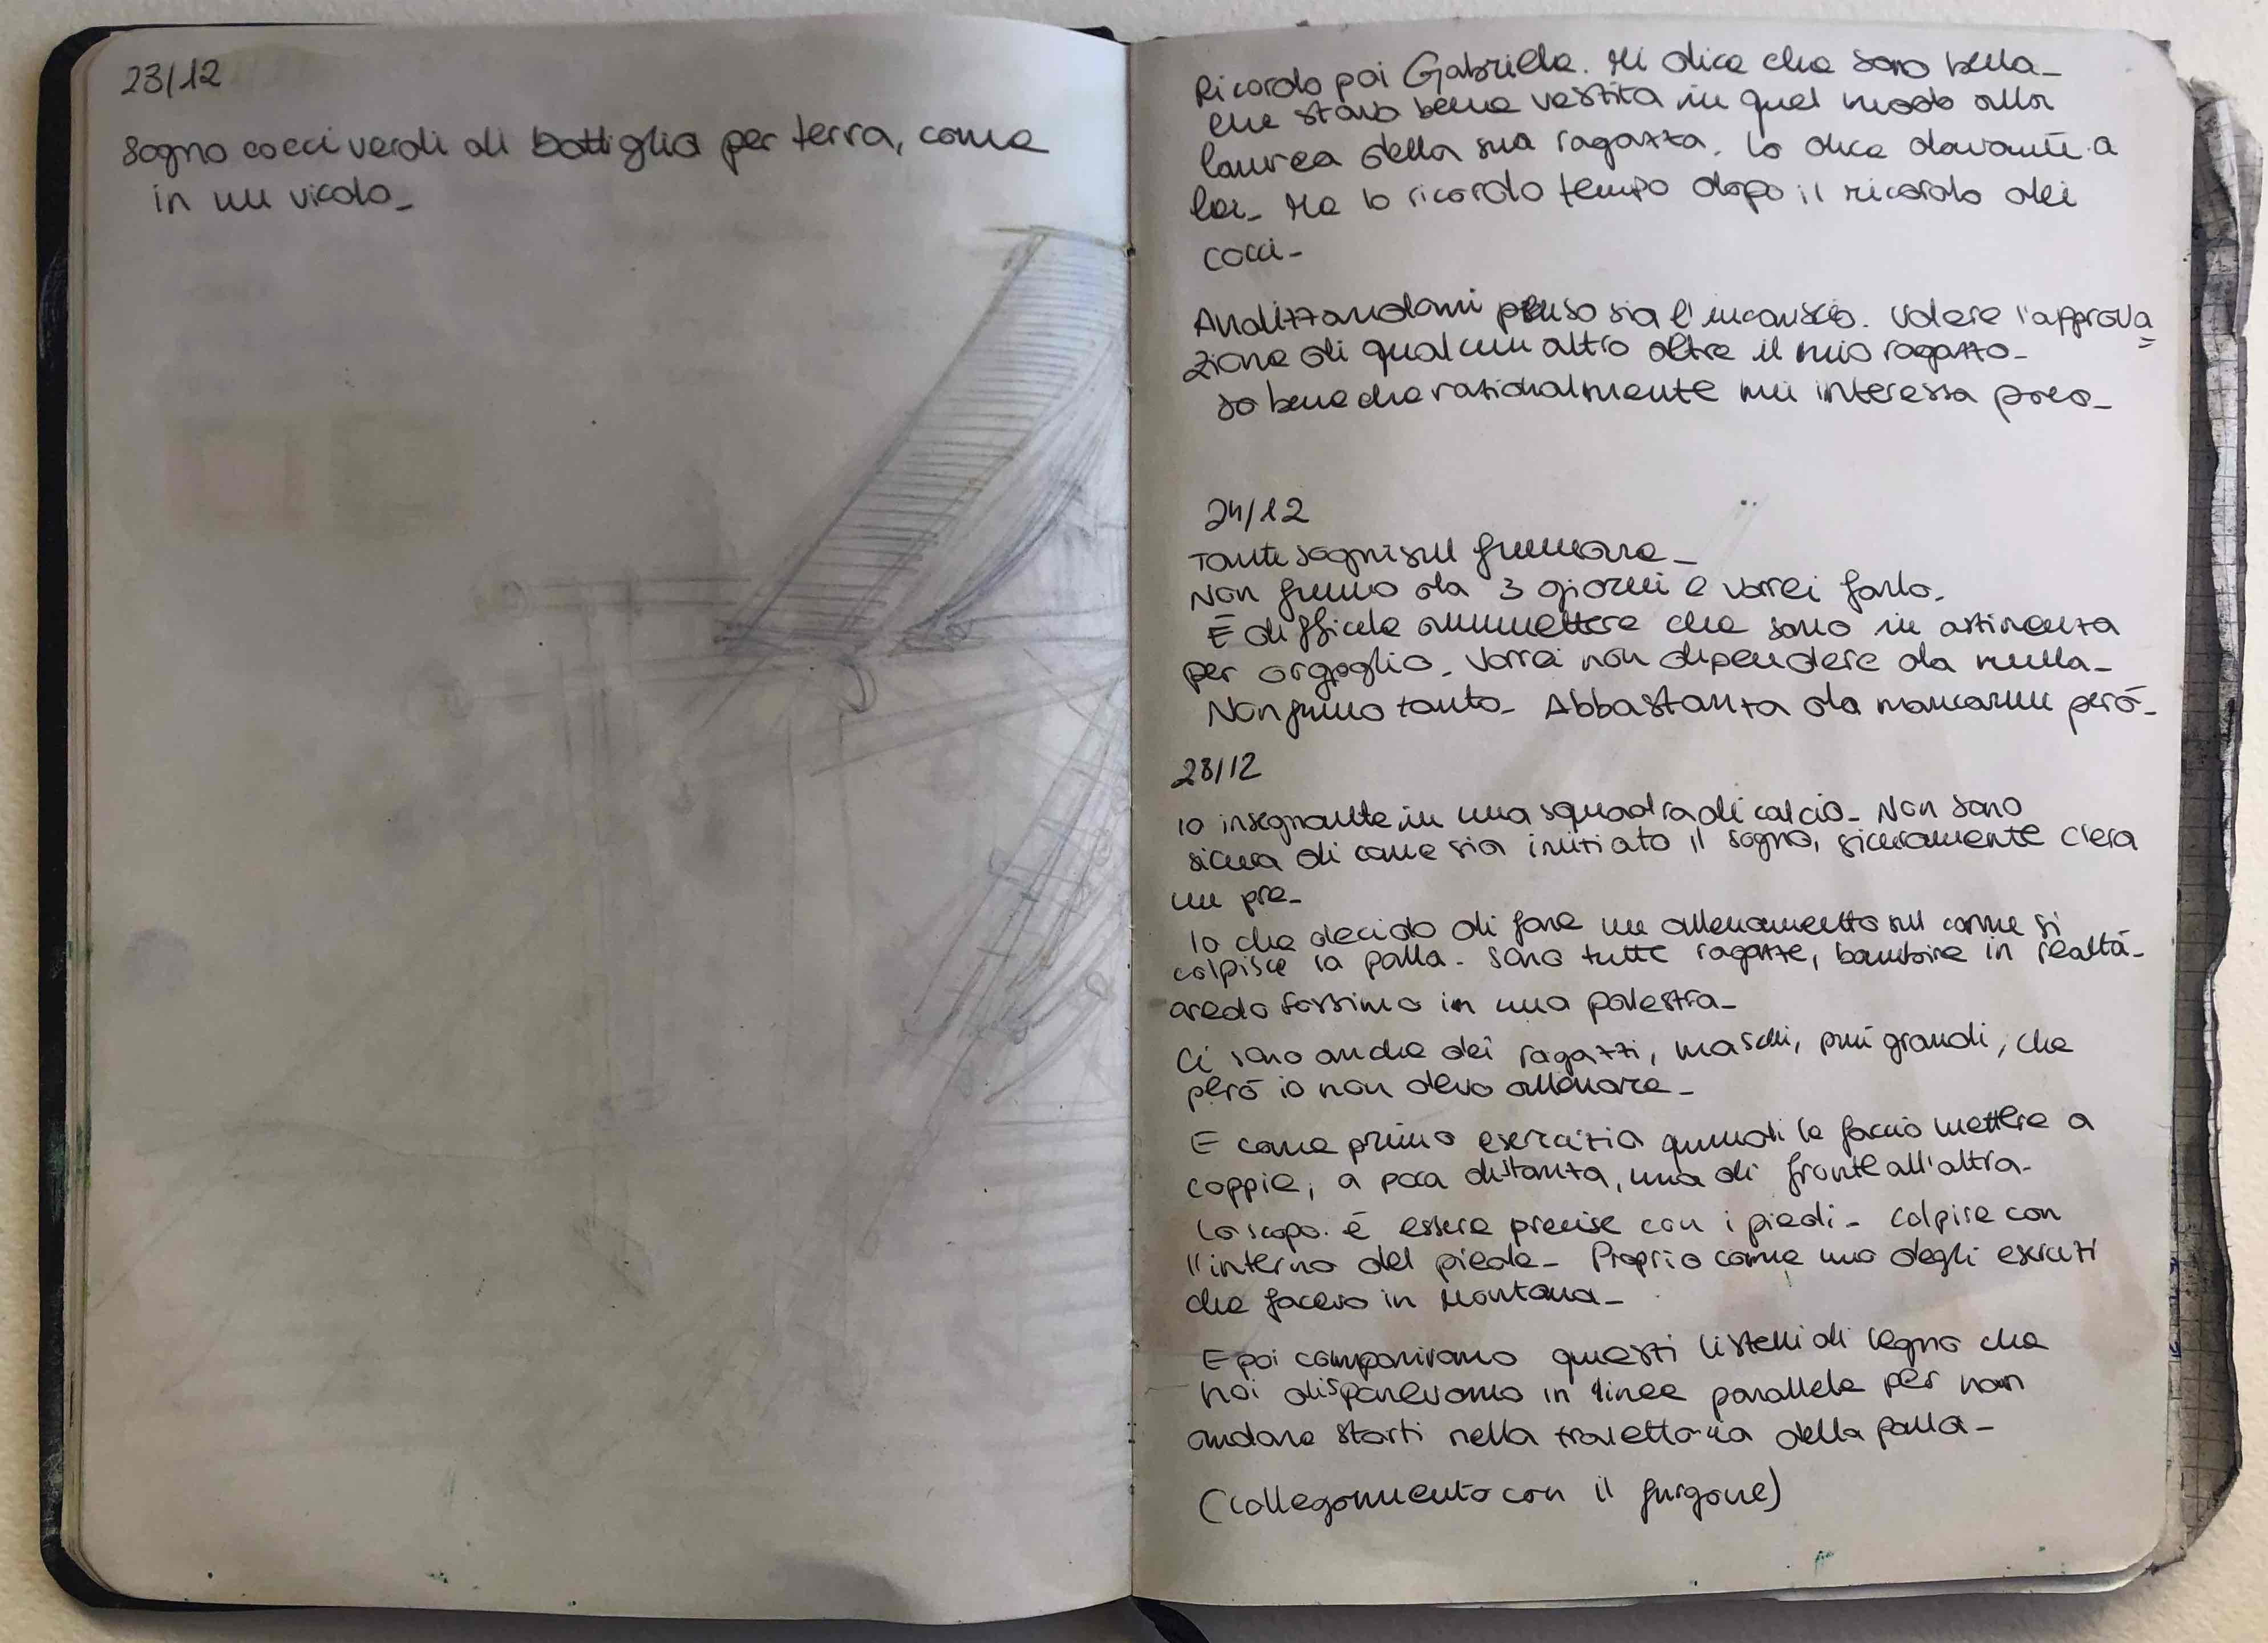 23/12
Sogno cocci verdi di bottiglia per terra, come
in un vicolo_
Ricordo poi Gabriele. Mi dice che sono bella_
che stavo bene vestita in quel modo alla
laurea della sua ragazza. Lo dice davanti a
lei_ Ma lo ricordo tempo dopo il ricordo dei
cocci_
Analizzandomi penso sia l'inconscio. Volere l'approva=
zione di qualcun altro oltre il mio ragazzo_
So bene che razionalmente mi interessa poco_
24/12
Tanti sogni sul fumare_
Non fumo da 3 giorni e vorrei farlo.
È difficile ammettere che sono in astinenza
per orgoglio_ Vorrei non dipendere da nulla_
Non fumo tanto_ Abbastanza da mancarmi però_
28/12
Io insegnante in una squadra di calcio_ Non sono
sicura di come sia iniziato il sogno, sicuramente c'era
un pre_
Io che decido di fare un allenamento sul come si
colpisce la palla_ Sono tutte ragazze, bambine in realtà_
credo fossimo in una palestra_
Ci sono anche dei ragazzi, maschi, più grandi, che
però io non devo allenare_
E come primo esercizio quindi le faccio mettere a
coppie, a poca distanza, una di fronte all'altra_
Lo scopo è essere precise con i piedi_ Colpire con
l'interno del piede_ Proprio come uno degli esercizi
che facevo in Montana_
E poi comparivano questi listelli di legno che
noi disponevamo in linee parallele per non
andare storti nella traiettoria della palla_
(collegamento con il furgone)